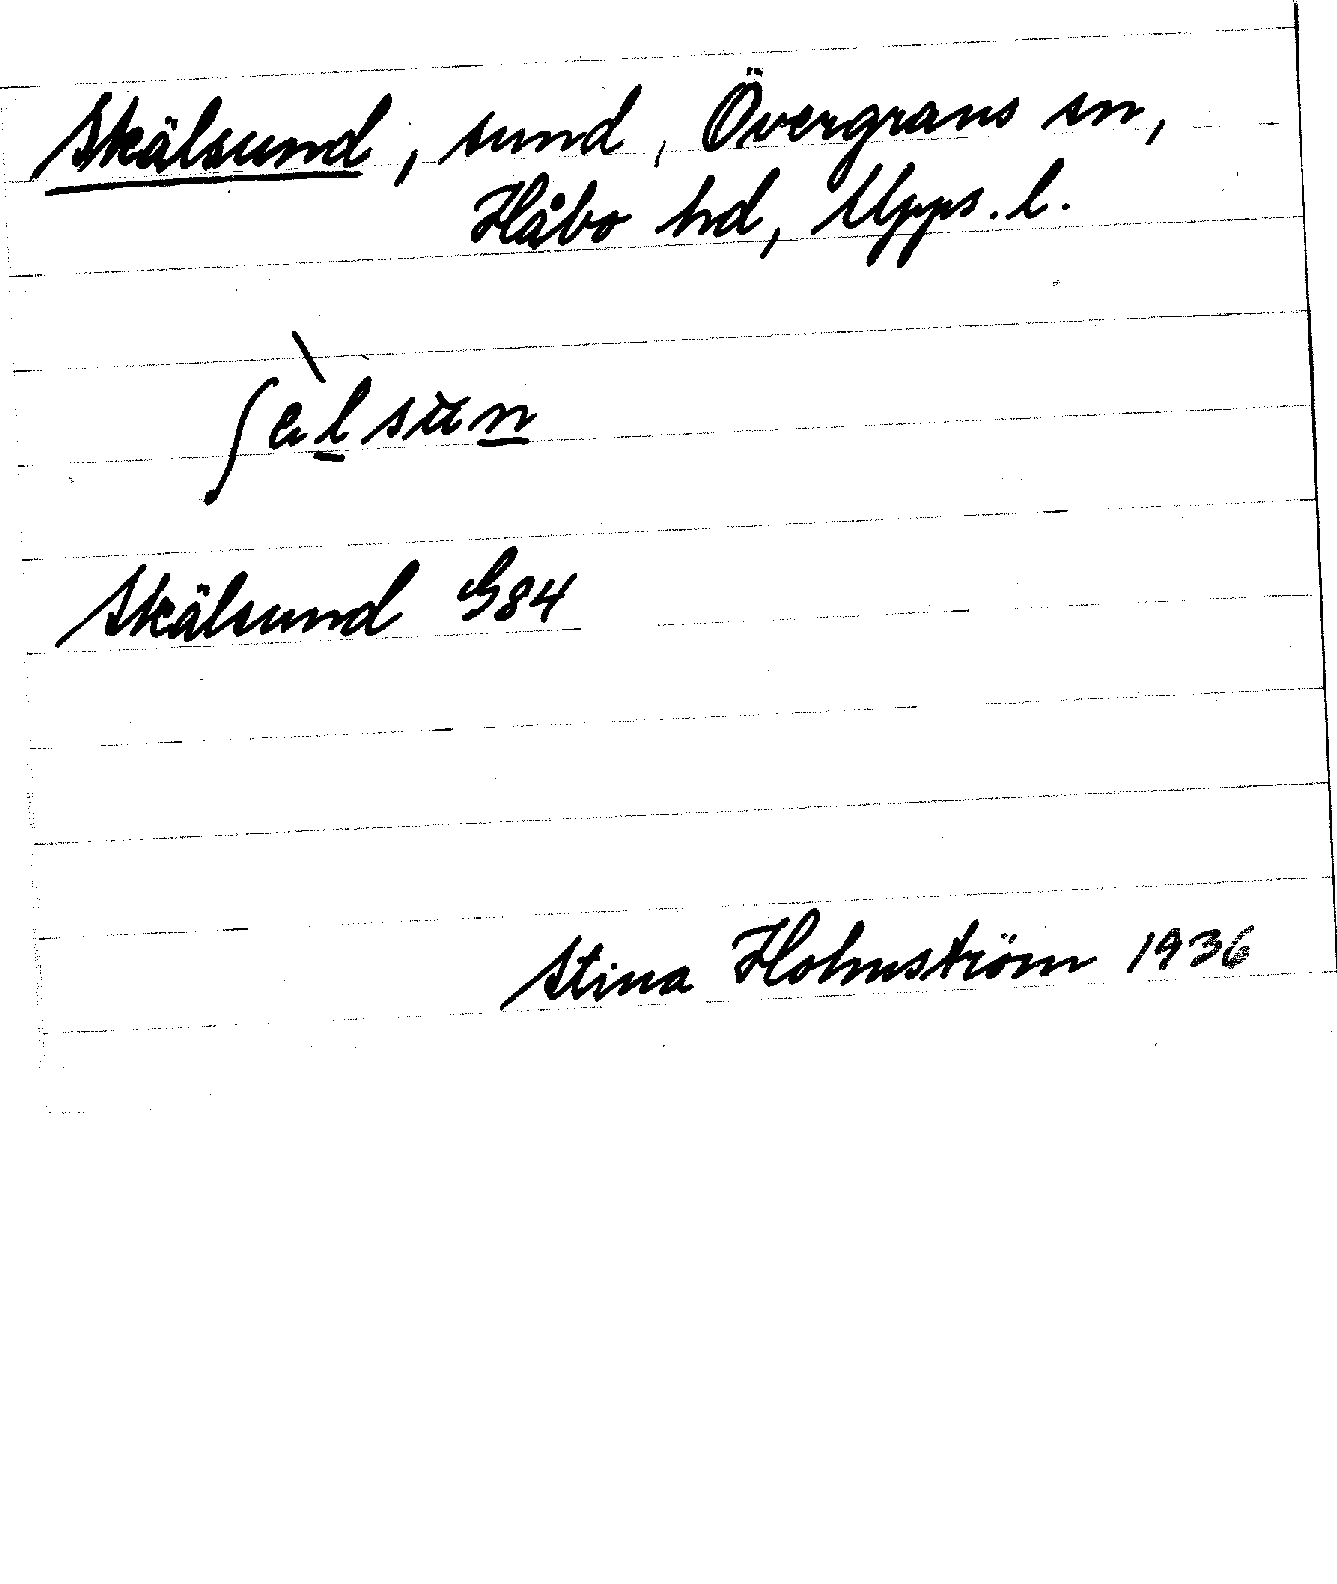 Skälsund, sund, Övergrans sn,
Håbo hd, Upps. l.
Skälsund G84
Stina Holmström 1936